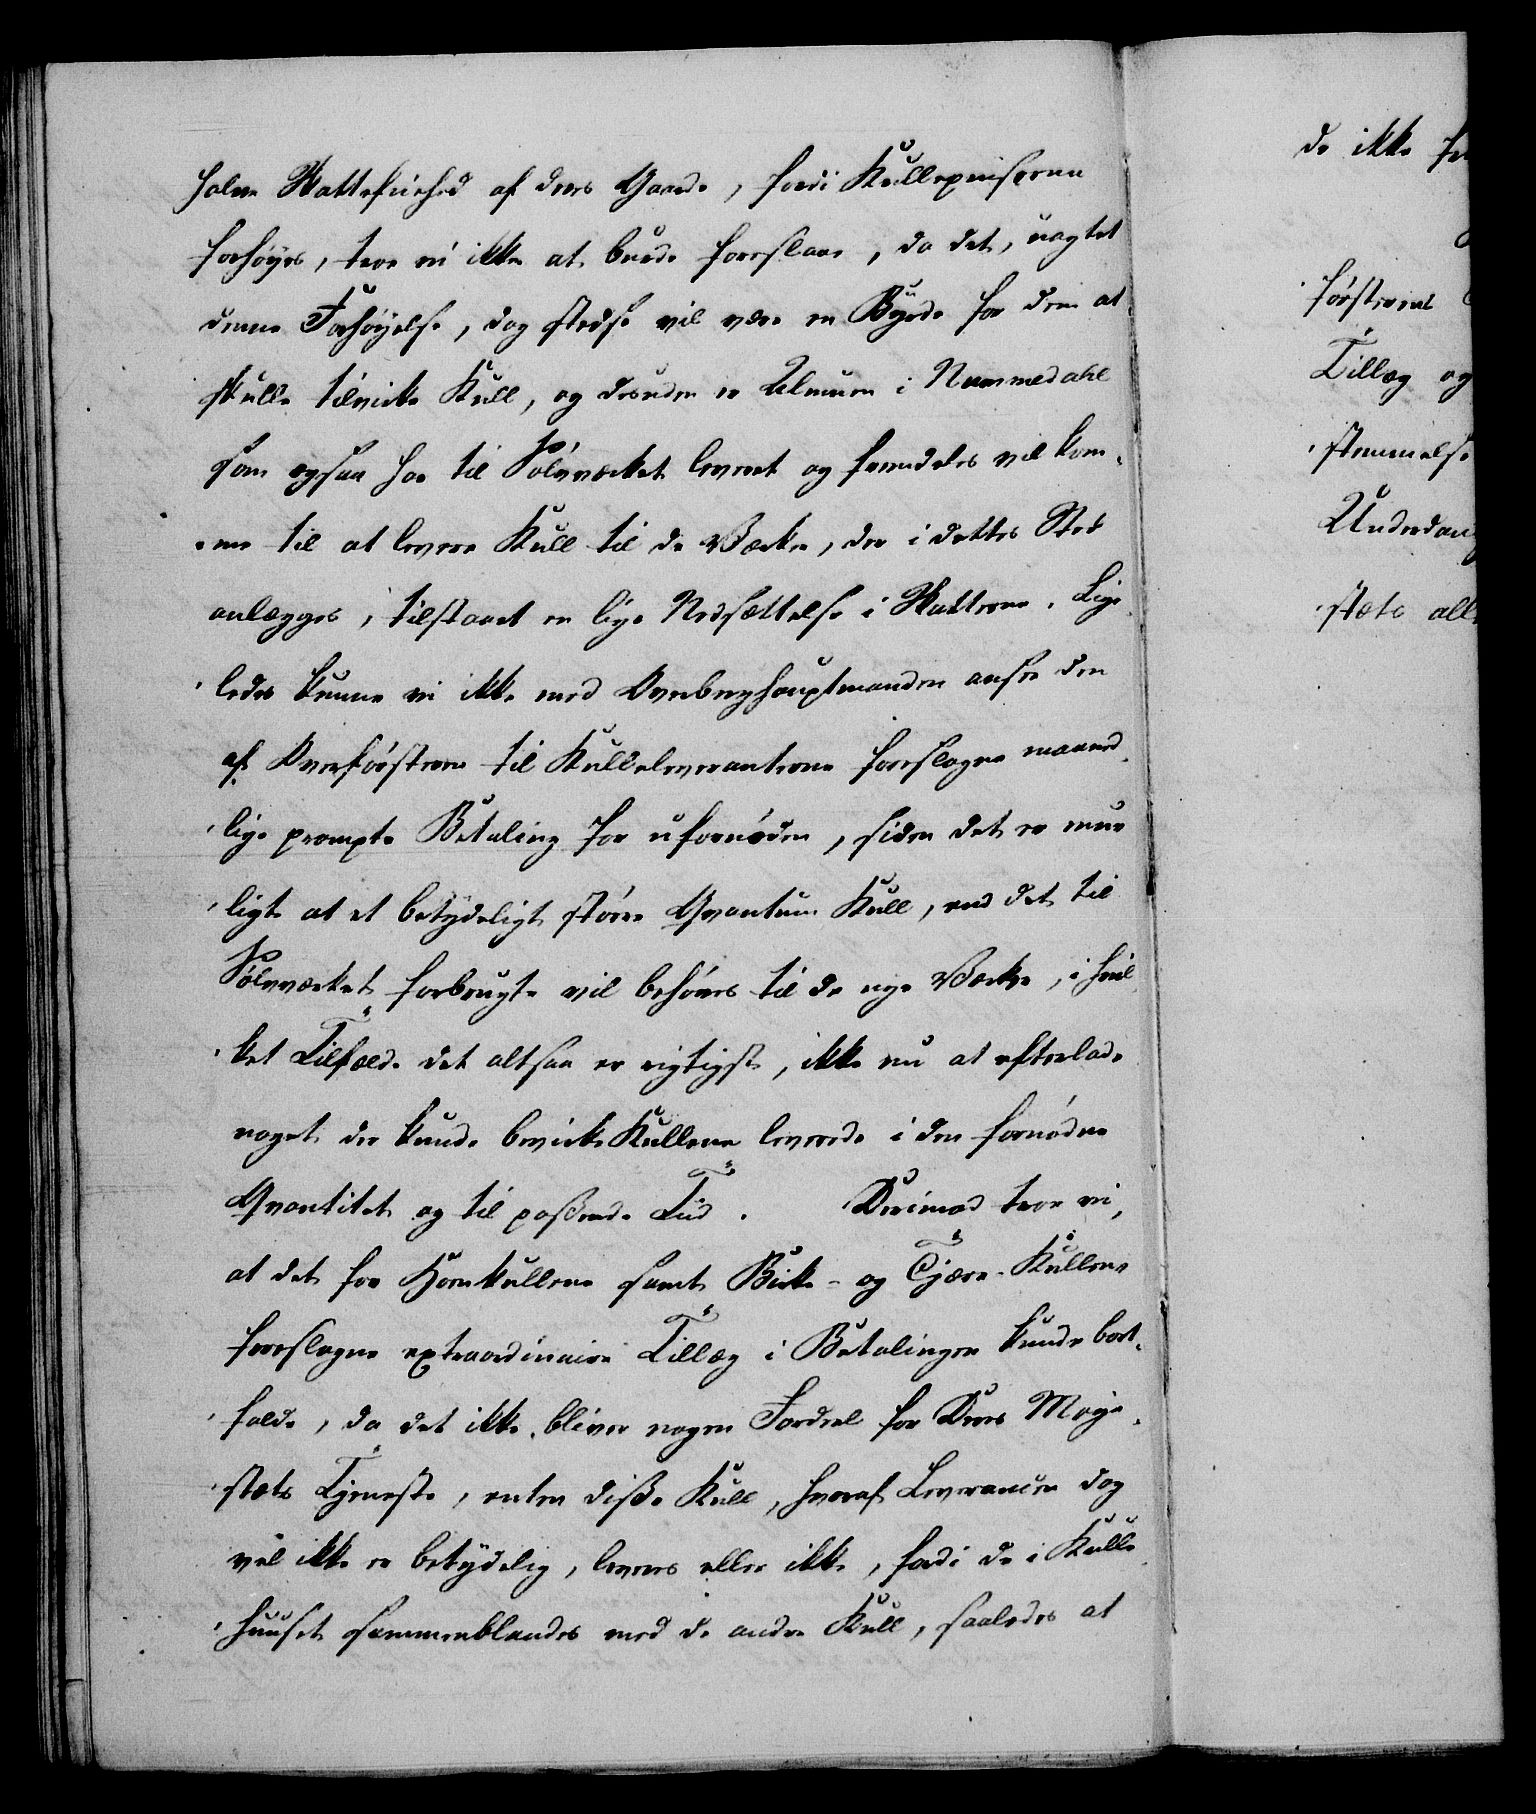 halve Skattefriehed af deres Gaarde, fordi Kullepriserne
forhøyes, troe vi ikke at burde foreslaae, da det, uagtet
denne Forhøyelse, dog stedse vil være en Byrde for dem at
skulle tilvirke Kull, og desuden er Almuen i Nummedahl
som ogsaa har til Sølvværket leveret og fremdeles vil kom-
me til at levere Kull til de Værker, der i dettes Sted
anlægges, tilstaaet en lige Nedsættelse i Skatterne. Lige-
ledes kunne vi ikke med Overberghauptmanden ansee den
af Overførsteren til Kulleleveranterne foreslagne maaned-
lige prompte Betaling for ufornøden, siden det er mue-
ligt at et betydeligt større Qvantum Kull, end det til
Sølvværket forbrugte vil behøves til de nye Værker, i hvil-
ket Tilfælde det altsaa er rigtigst, ikke nu at efterlade
noget der kunde bevirke Kullene leverede i den fornødne
Qvantitet og til passende Tiid. Derimod troe vi,
at det for Hornkullene samt Birke- og Tjære-Kullene
foreslagne extraordinaire Tillæg i Betalingen kunde bort-
falde, da det ikke bliver nogen Fordeel for Deres Maje-
stæts Tjeneste, enten disse Kull, hvoraf Leverancen dog
vel ikke er betydelig, leveres eller ikke, fordi de i Kulle-
huuset sammenblandes med de andre Kull, saaledes at
de ikke
førsteren
Tillæg og
stemmelse
Underdanig
stæts all